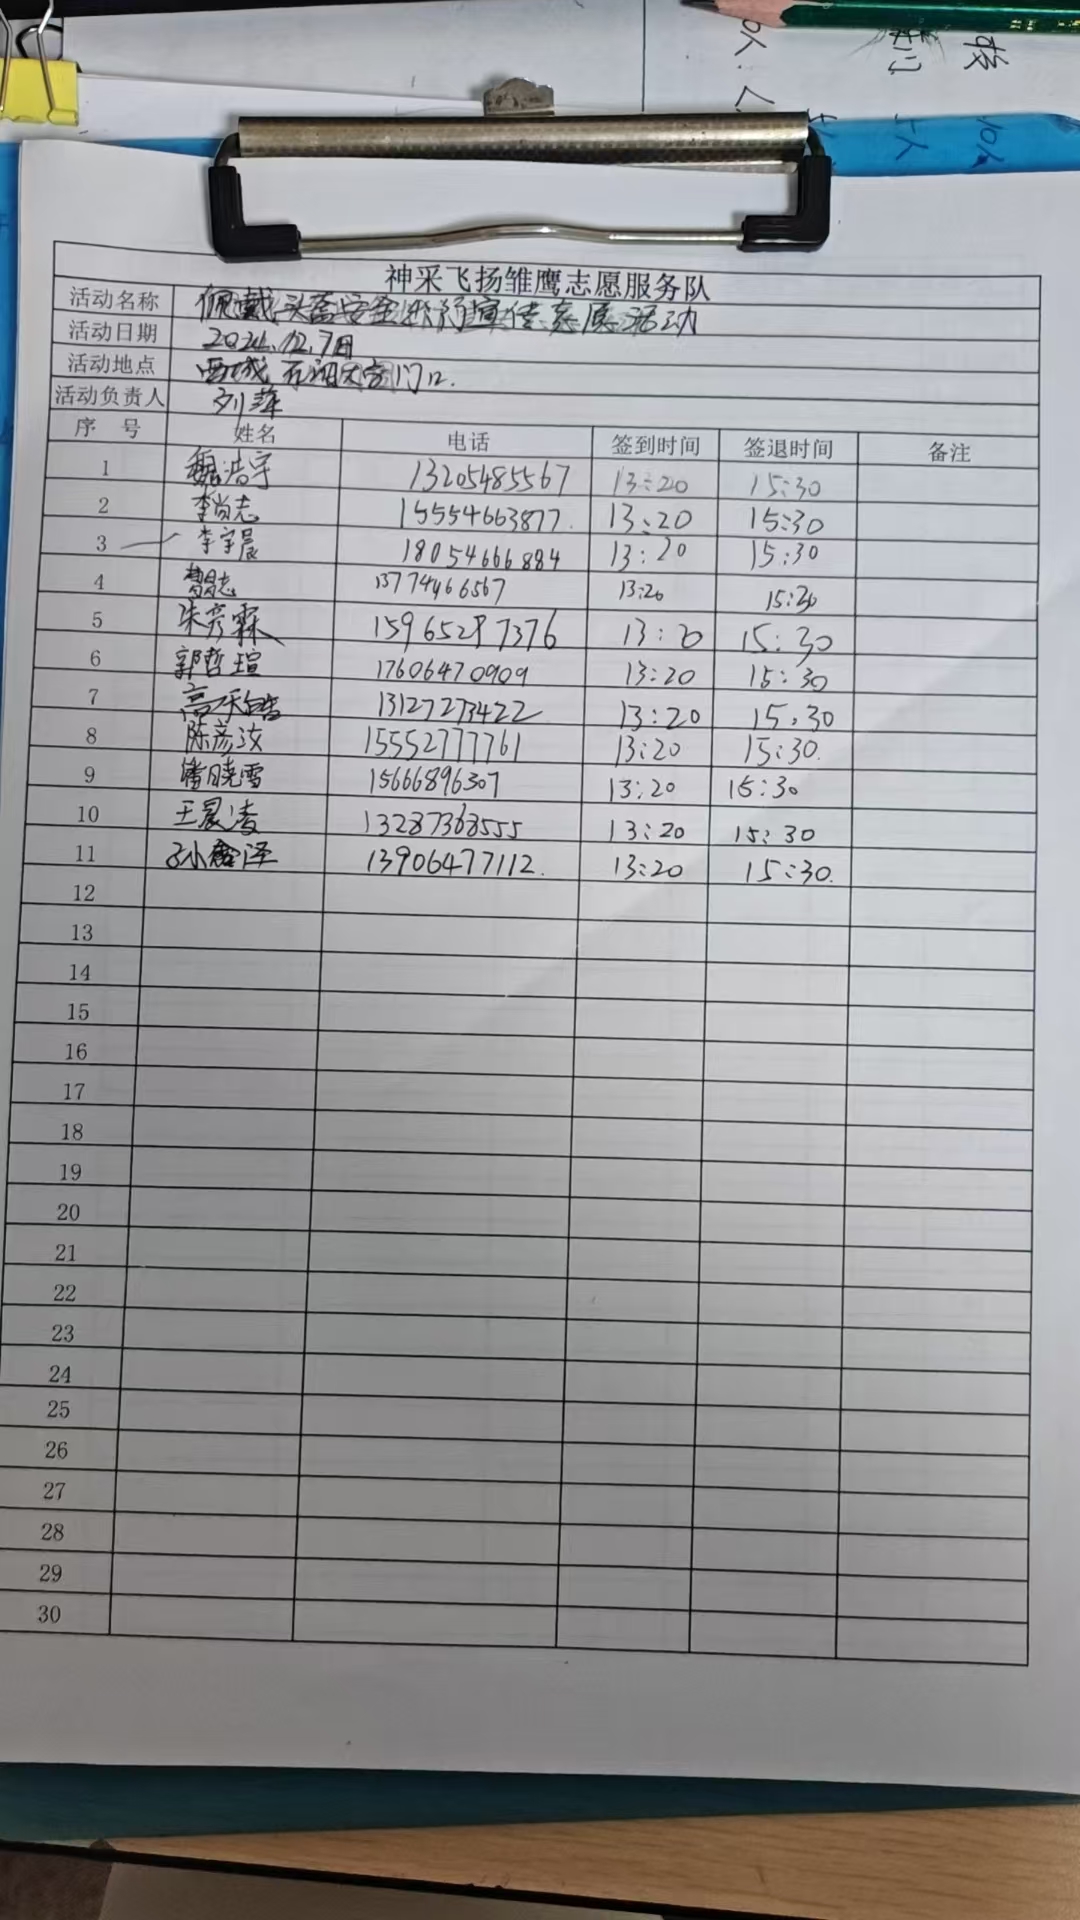 神采飞扬雏鹰志愿服务队
活动名称 佩戴头盔安全出行宣传志愿活动
活动日期 2024.12.7日
活动地点 西城 大门口.
活动负责人 刘萍
序 号 姓名 电话 签到时间 签退时间 备注
1 魏浩宇 13205485567 13:20 15:30
2 李尚志 15554663877. 13:20 15:30
3 李宇晨 18054666884 13:20 15:30
4 13774466567 13:20 15:30
5 朱彦霖 15965287376 13:20 15:30
6 郭哲瑄 17606470909 13:20 15:30
7 高 皓 13127273422 13:20 15:30
8 陈彦汝 15552777761 13:20 15:30.
9 潘晓雪 15666896307 13:20 15:30
10 王晨凌 13287368555 13:20 15:30
11 孙 泽 13906477112. 13:20 15:30.
12
13
14
15
16
17
18
19
20
21
22
23
24
25
26
27
28
29
30